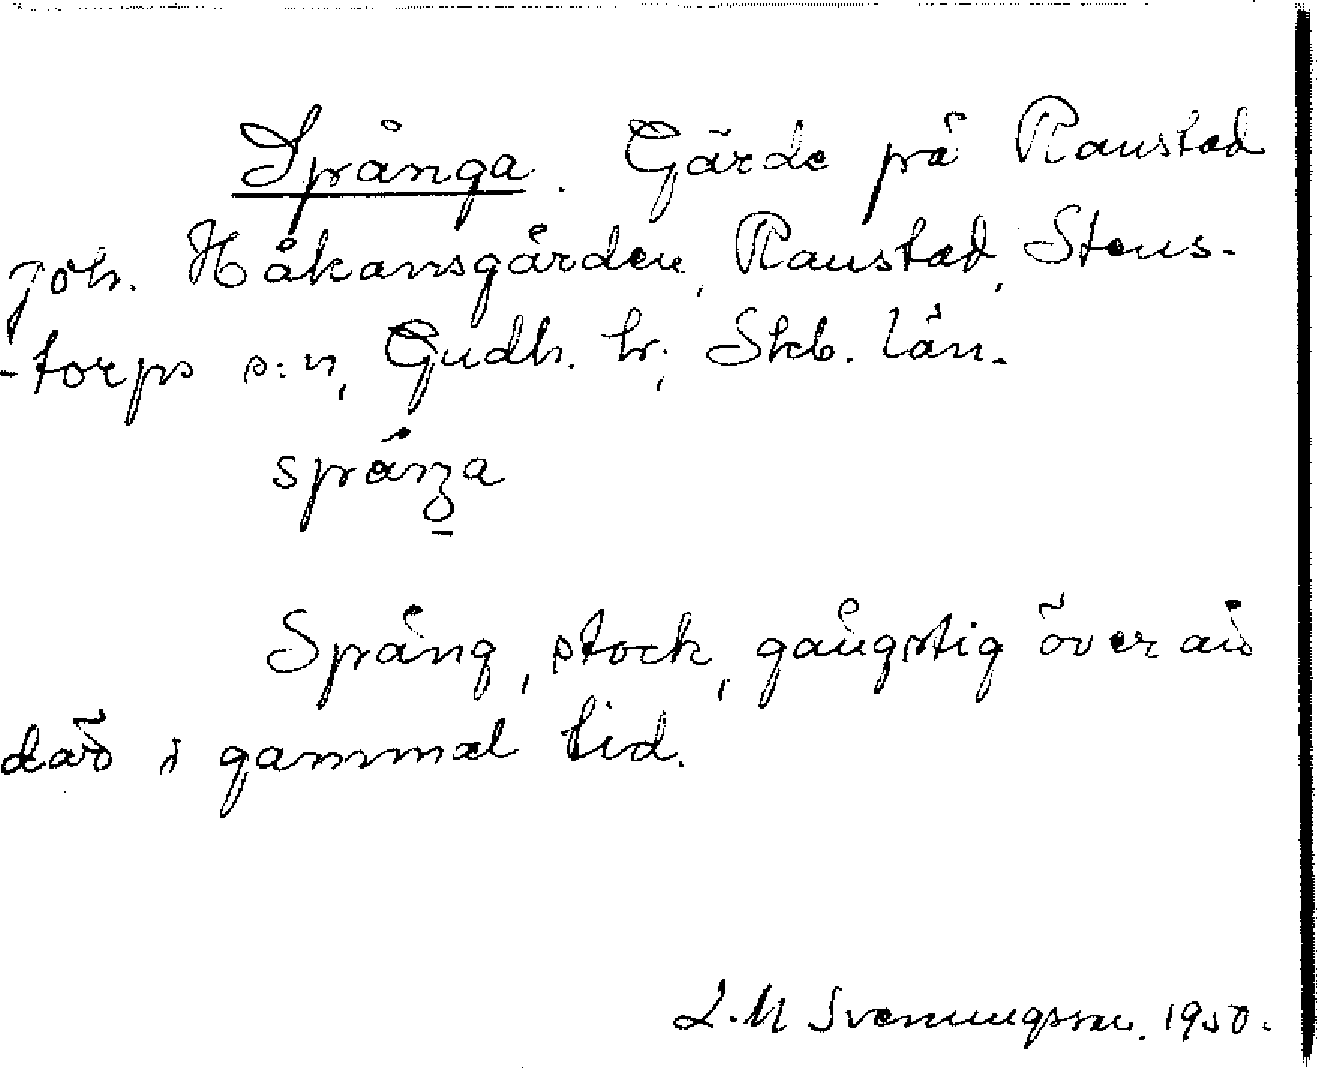 Spånga. Gärde på Raustad
Joh. Håkansgården, Raustad, Stens-
-torps s:n, Gudh. hr, Skb. län.
spåṉʒa
Spång, stock, gångstig över ån
där i gammal tid.
L.M Svenungsson. 1950.